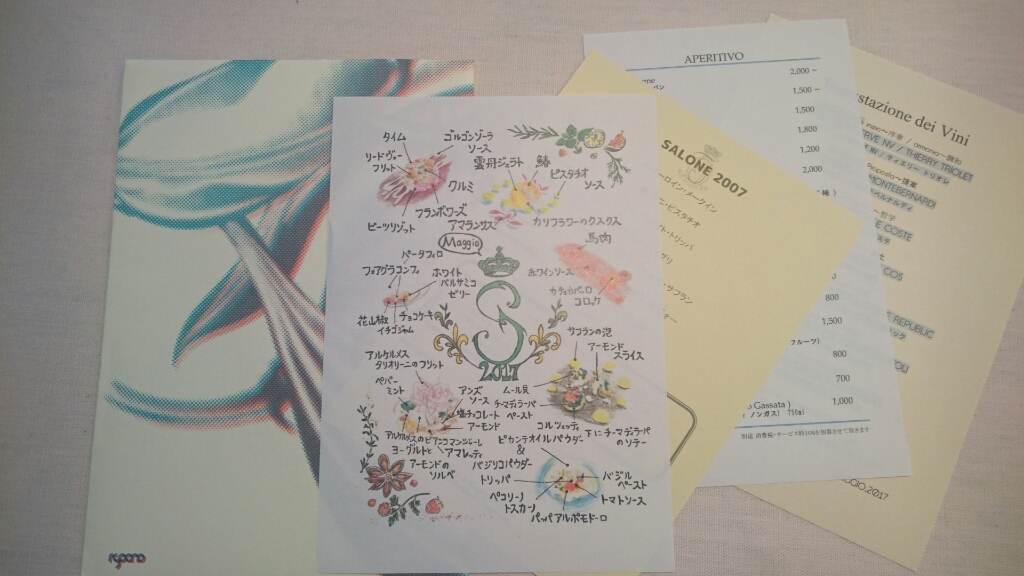 タイム
ゴルゴンゾーラ
ソース
リードヴォー
フリット
クルミ
フランボワーズ
ビーツリゾット
アマランサス
雲丹ジェラト
鰆
ピスタチオ
ソース
カリフラワーのクスクス
馬肉
Maggio
パータフィロ
フォアグラコンフィ
ホワイト
バルサミコ
ゼリー
花山椒
チョコケーキ
イチゴジャム
ホワインソース
カチョカバーロ
コロッケ
S
2017
サフランの泡
アーモンド
スライス
ムール貝
チーマディラーパ
ペースト
コルツェッティ
チーマディラーパ
のソテー
アルケルメス
タリオリーニのフリット
ペパー
ミント
アンズ
ソース
塩チョコレート
アーモンド
アルケルメスのビアンコマンジャーレ
ヨーグルトと
アマレッティ
アーモンドの
ソルベ
ピカンテオイルパウダー
&
バジリコパウダー
トリッパ
ペコリーノ
トスカーノ
パッパアルポモドーロ
バジル
ペースト
トマトソース
SALONE 2007
ーロイン・メークイン
ニ・ピスタチオ
ト・トリッパ
グリ
・サフラン
APERITIVO
2,000～
1,500～
1,500
1,800
1,200
2,000
800
1,500
フルーツ）
800
700
Gassata )
( ノンガス) 750ml
1,000
別途 消費税・サービス料10%を加算させて頂きます
stazione dei Vini
ERVE NV / THIERRY TRIOLET
ティエリー トリオレ
Proposta～提案
MONTEBERNARDI
ベルナルディ
E COSTE
COS
REPUBLIC
OLI
GIO.2017